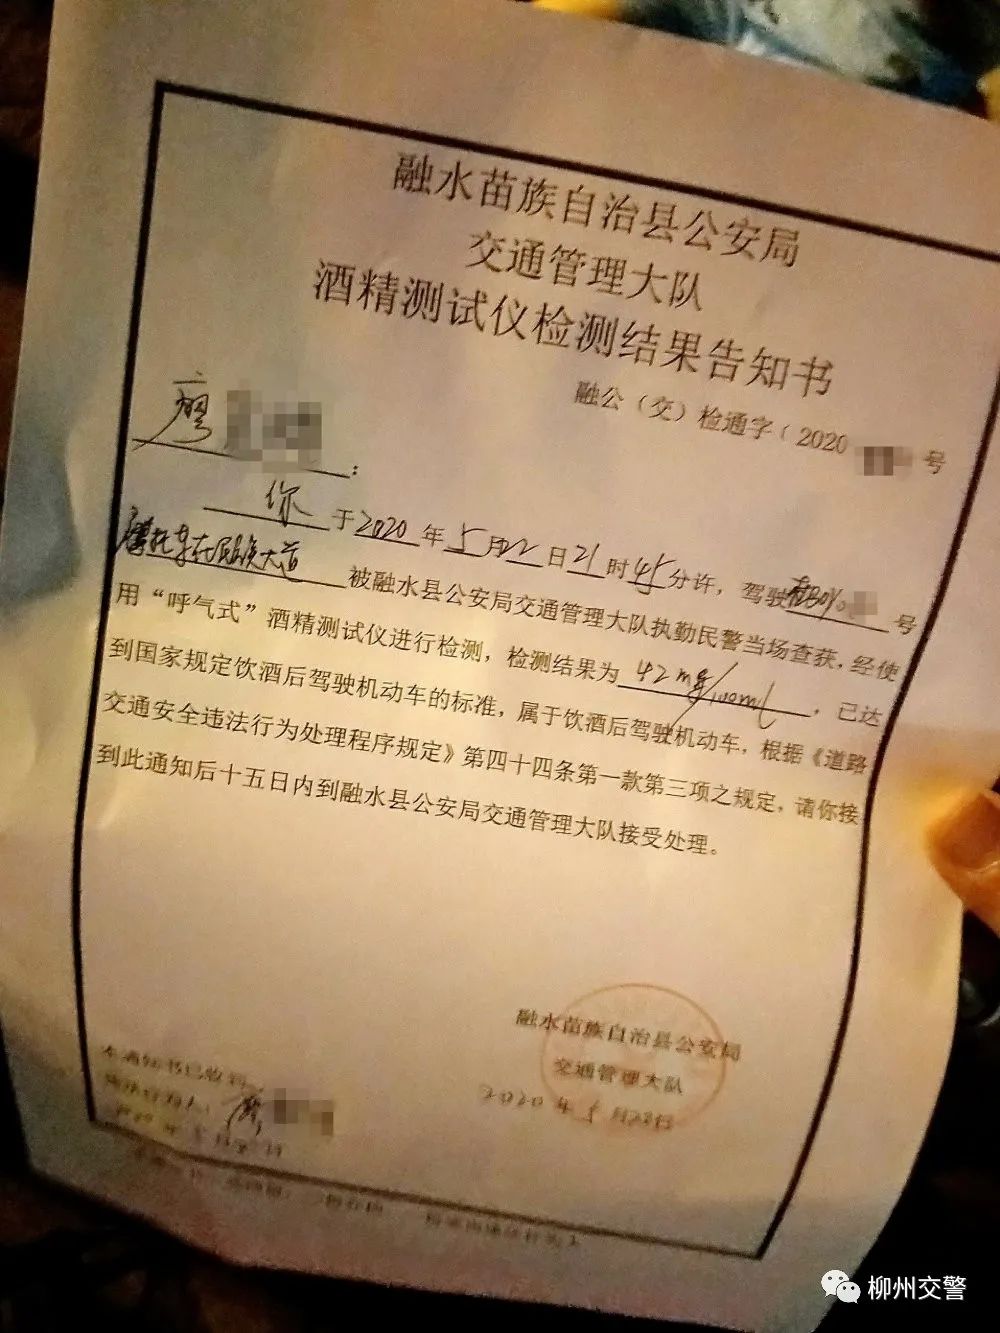 融水苗族自治县公安局
交通管理大队
酒精测试仪检测结果告知书
融公（交）检通字﹝2020 号
廖 ：
你于2020年5月22日21时45分许，驾驶 号
摩托车在民族大道被融水县公安局交通管理大队执勤民警当场查获，经使
用“呼气式”酒精测试仪进行检测，检测结果为42mg/100ml，已达
到国家规定饮酒后驾驶机动车的标准，属于饮酒后驾驶机动车，根据《道路
交通安全违法行为处理程序规定》第四十四条第一款第三项之规定，请你接
到此通知后十五日内到融水县公安局交通管理大队接受处理。
融水苗族自治县公安局
交通管理大队
2020年5月22日
本通知书已收到
廖
柳州交警